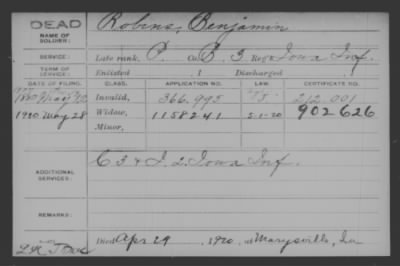 DEAD
NAME OF SOLDIER: Robins, Benjamin
SERVICE: Late rank, P. Co. B, 3 Reg't Iowa Inf.
TERM OF SERVICE: Enlisted , 1 Discharged
DATE OF FILING. CLASS. APPLICATION NO. LAW. CERTIFICATE NO.
1880 May Invalid, 366.995 212.001
1920 May 28 Widow, 1158241 5-1-20 902626
Minor,
ADDITIONAL SERVICES: C 3 & I. 2. Iowa Inf.
REMARKS:
Died Apr 29 1920, at Marysville, Ia